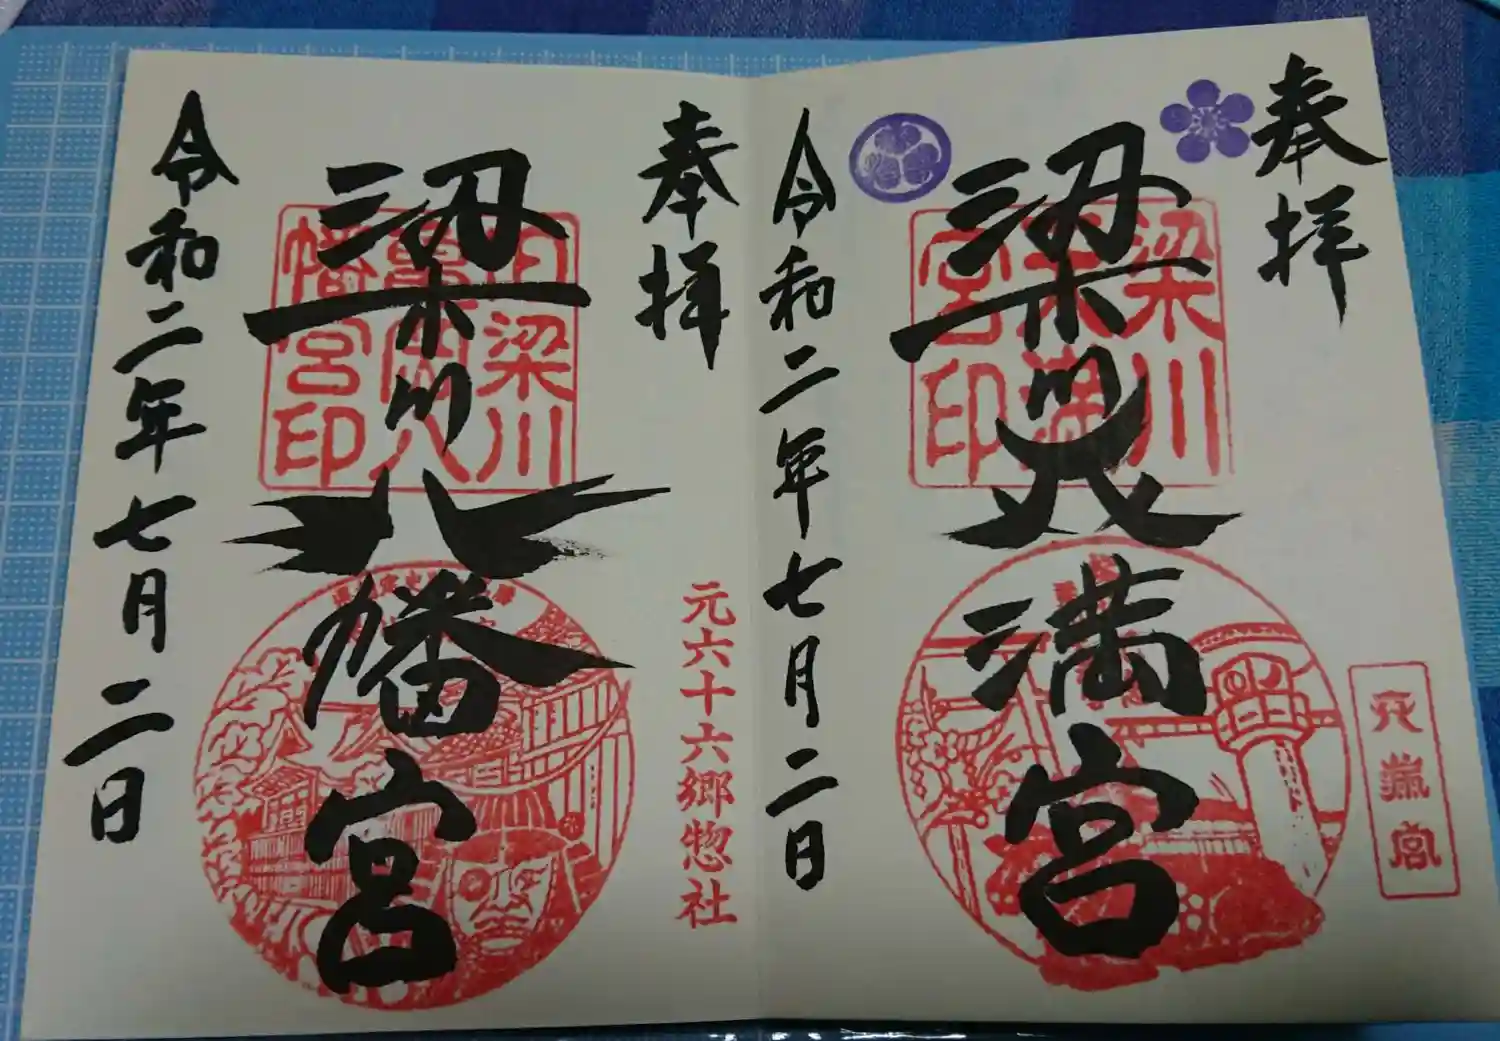 奉拝
天満宮
梁川
天満
宮印
梁川天満宮
令和二年七月二日
奉拝
元六十六郷惣社
梁川
亀岡八
幡宮印
梁川八幡宮
令和二年七月二日